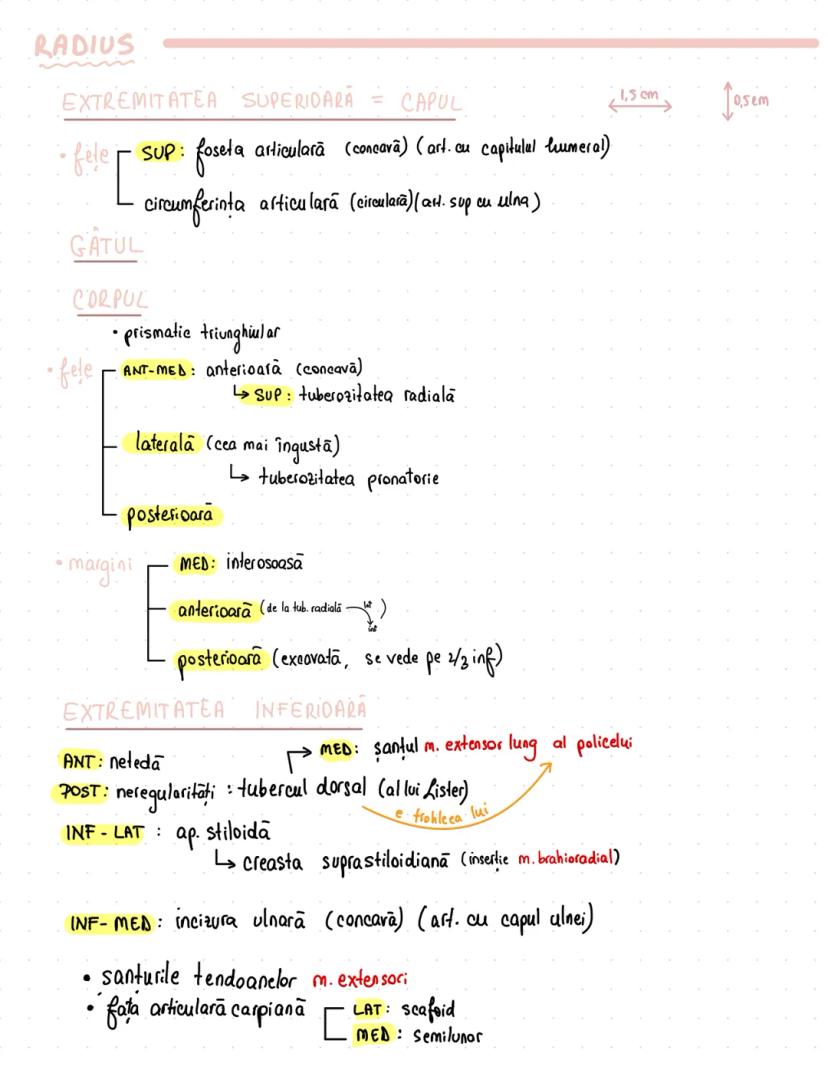 RADIUS
EXTREMITATEA SUPERIOARĂ = CAPUL
1,5 cm
0,5cm
• fețe
SUP: foseta articulară (concavă) (art. cu capitulul humeral)
circumferința articulară (circulară) (art. sup cu ulna)
GÂTUL
CORPUL
• prismatic triunghiular
• fețe
ANT-MED: anterioară (concavă)
↳ SUP: tuberozitatea radială
laterală (cea mai îngustă)
↳ tuberozitatea pronatorie
posterioară
• margini
MED: interosoasă
anterioară (de la tub. radială → lat inf)
posterioară (excavată, se vede pe 2/3 inf)
EXTREMITATEA INFERIOARĂ
MED: șanțul m. extensor lung al policelui
ANT: netedă
POST: neregularități: tubercul dorsal (al lui Lister)
e trohleea lui
INF-LAT: ap. stiloidă
↳ creasta suprastiloidiană (inserție m. brahioradial)
INF-MED: incizura ulnară (concavă) (art. cu capul ulnei)
• șanturile tendoanelor m. extensori
• fața articulară carpiană
LAT: scafoid
MED: semilunar